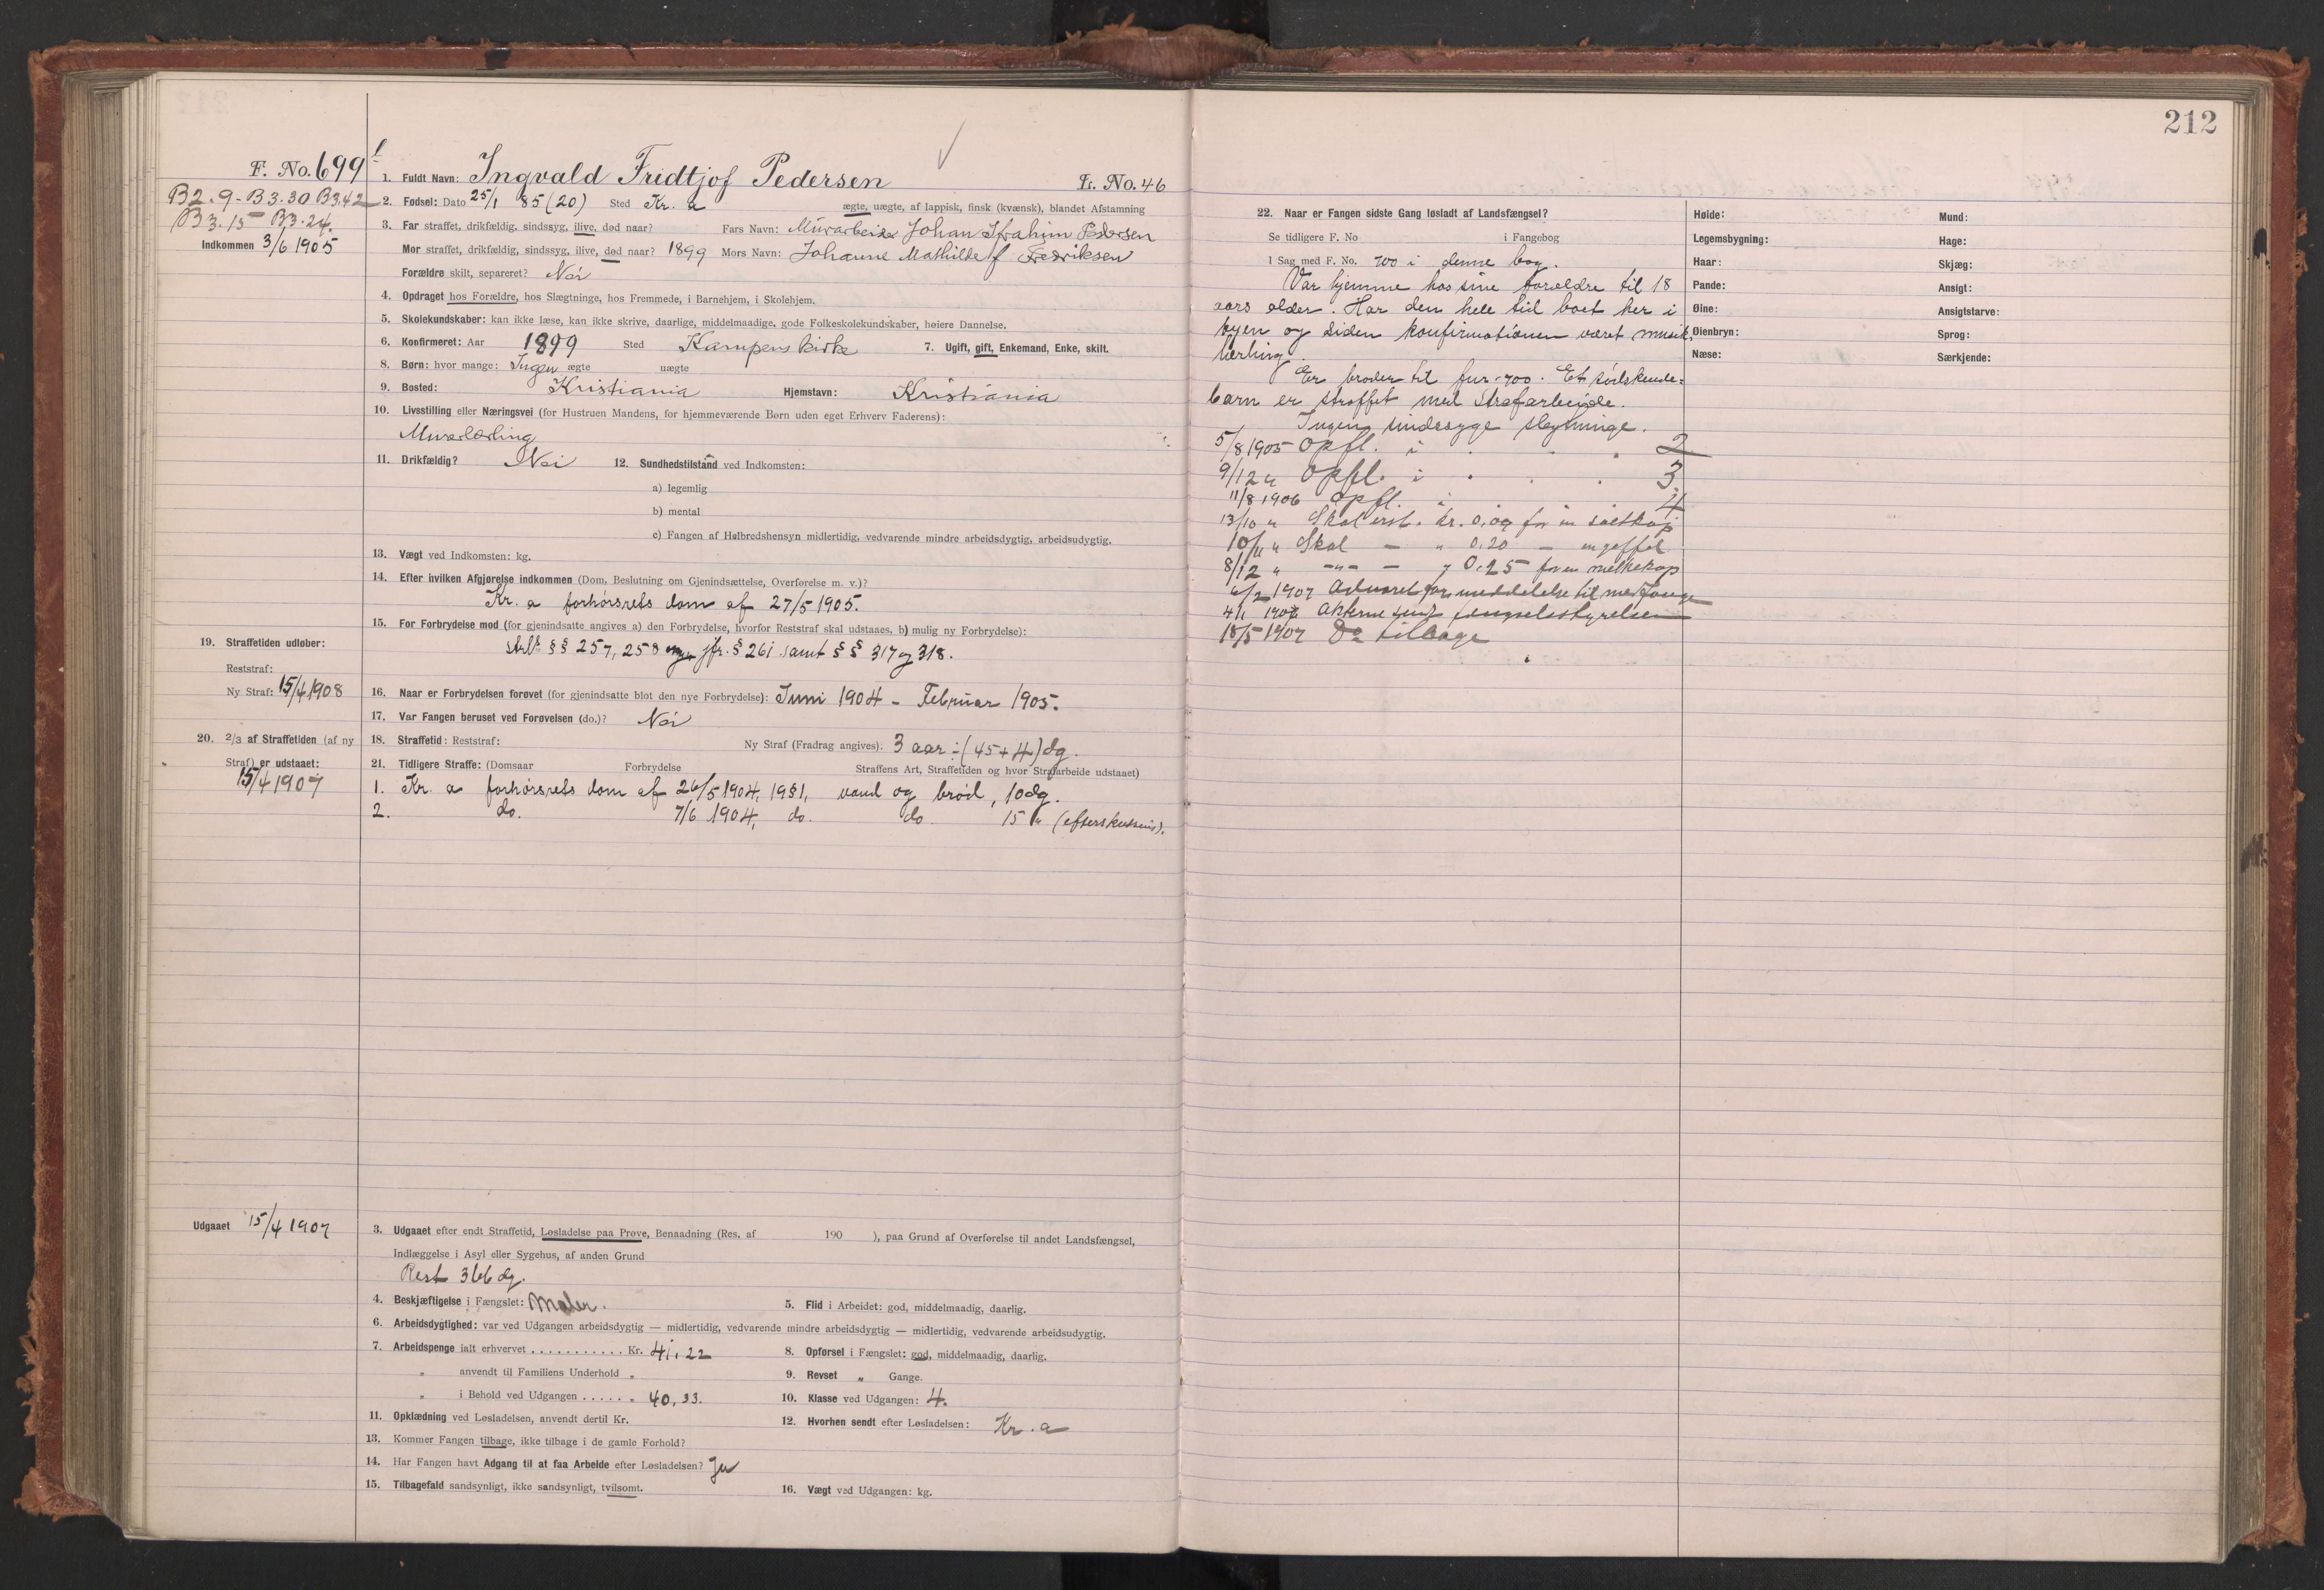 F. No. 699
1. Fuldt Navn: Ingvald Fridtjof Pedersen
Fr. No. 46
B2.9 - B3.30 B3.42
B3.15 B3.24.
Indkommen 3/6 1905
2. Fødsel: Dato 25/1 85 (20) Sted Kr. a ægte, uægte, af lappisk, finsk (kvænsk), blandet Afstamning
3. Far straffet, drikfældig, sindssyg, ilive, død naar? Fars Navn: Murarbeider Johan Pedersen
Mor straffet, drikfældig, sindssyg, ilive, død naar? 1899 Mors Navn: Johanne Mathilde f Fredriksen
Forældre skilt, separeret? Nei
4. Opdraget hos Forældre, hos Slægtninge, hos Fremmede, i Barnehjem, i Skolehjem.
5. Skolekundskaber: kan ikke læse, kan ikke skrive, daarlige, middelmaadige, gode Folkeskolekundskaber, høiere Dannelse.
6. Konfirmeret: Aar 1899 Sted Kampens kirke 7. Ugift, gift, Enkemand, Enke, skilt.
8. Børn: hvor mange: Ingen ægte uægte
9. Bosted: Kristiania Hjemstavn: Kristiania
10. Livsstilling eller Næringsvei (for Hustruen Mandens, for hjemmeværende Børn uden eget Erhverv Faderens):
Murerlærling
11. Drikfældig? Nei 12. Sundhedstilstand ved Indkomsten:
a) legemlig
b) mental
c) Fangen af Helbredshensyn midlertidig, vedvarende mindre arbeidsdygtig, arbeidsudygtig.
13. Vægt ved Indkomsten: kg.
14. Efter hvilken Afgjørelse indkommen (Dom, Beslutning om Gjenindsættelse, Overførelse m. v.)?
Kr. a forhørsrets dom af 27/5 1905.
15. For Forbrydelse mod (for gjenindsatte angives a) den Forbrydelse, hvorfor Reststraf skal udstaaes, b) mulig ny Forbrydelse):
Str.l. §§ 257, 258 jfr. § 261 samt §§ 317 og 318.
19. Straffetiden udløber:
Reststraf:
Ny Straf: 15/4 1908
16. Naar er Forbrydelsen forøvet (for gjenindsatte blot den nye Forbrydelse): Juni 1904 - Februar 1905.
17. Var Fangen beruset ved Forøvelsen (do.)? Nei
20. 2/3 af Straffetiden (af ny
Straf) er udstaaet:
15/4 1907
18. Straffetid: Reststraf: Ny Straf (Fradrag angives): 3 aar ÷ (45 + 4) dg.
21. Tidligere Straffe: (Domsaar Forbrydelse Straffens Art, Straffetiden og hvor Strafarbeide udstaaet)
1. Kr. a forhørsrets dom af 26/5 1904, 19 § 1, vand og brød, 10 dg.
2. do. 7/6 1904, do. do. 15 "
Udgaaet 15/4 1907
3. Udgaaet efter endt Straffetid, Løsladelse paa Prøve, Benaadning (Res. af 190 ), paa Grund af Overførelse til andet Landsfængsel,
Indlæggelse i Asyl eller Sygehus, af anden Grund
Rest 366 dg.
4. Beskjæftigelse i Fængslet: Maler. 5. Flid i Arbeidet: god, middelmaadig, daarlig.
6. Arbeidsdygtighed: var ved Udgangen arbeidsdygtig — midlertidig, vedvarende mindre arbeidsdygtig — midlertidig, vedvarende arbeidsudygtig.
7. Arbeidspenge ialt erhvervet . . . . . . . . . . . Kr. 41,22 8. Opførsel i Fængslet: god, middelmaadig, daarlig.
" anvendt til Familiens Underhold " 9. Revset " Gange.
" i Behold ved Udgangen . . . . . " 40,33. 10. Klasse ved Udgangen: 4.
11. Opklædning ved Løsladelsen, anvendt dertil Kr. 12. Hvorhen sendt efter Løsladelsen: Kr. a
13. Kommer Fangen tilbage, ikke tilbage i de gamle Forhold?
14. Har Fangen havt Adgang til at faa Arbeide efter Løsladelsen? Ja
15. Tilbagefald sandsynligt, ikke sandsynligt, tvilsomt. 16. Vægt ved Udgangen: kg.
212
22. Naar er Fangen sidste Gang løsladt af Landsfængsel?
Se tidligere F. No i Fangebog
I Sag med F. No. 700 i denne bog.
Var hjemme hos sine forældre til 18
aars alder. Har den hele tid boet her i
byen og siden konfirmationen været
lærling.
Er broder til fnr. 700. Et sødskende-
barn er straffet med strafarbeide.
Ingen sindssyge slegtninge.
5/8 1905 Opfl. i . . . 2
9/12 " Opfl. i . . . 3.
11/8 1906 Opfl. i 4
13/10 " Skal erst. kr. 0,09 for en
10/11 " Skal — " 0.20 — en gaffel
8/12 " -"- — " 0.25 for en melkekop
6/2 1907 Advaret for meddelelse til medfange
4/1 1907 Akterne sendt fængselsstyrelsen
18/5 1907 Do tilbage
Høide:
Legemsbygning:
Haar:
Pande:
Øine:
Øienbryn:
Næse:
Mund:
Hage:
Skjæg:
Ansigt:
Ansigtstarve:
Sprog:
Særkjende: